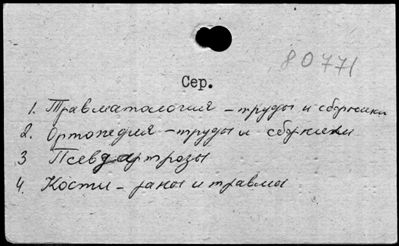 80771
Сер.
1. Травматология – труды и сборники
2. Ортопедия – труды и сборники
3 Псевдартрозы
4. Кости – раны и травмы